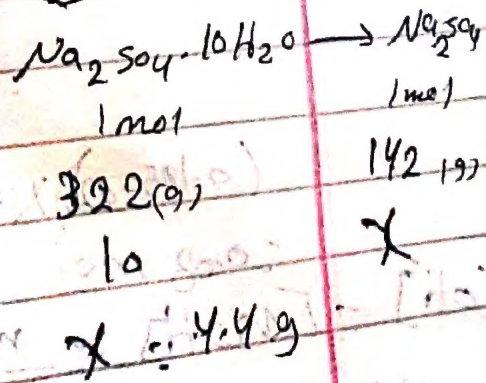 Na2SO4.10H2O → Na2SO4
1mol 1mol
322(g) 142(g)
10 X
X = 4.4 g